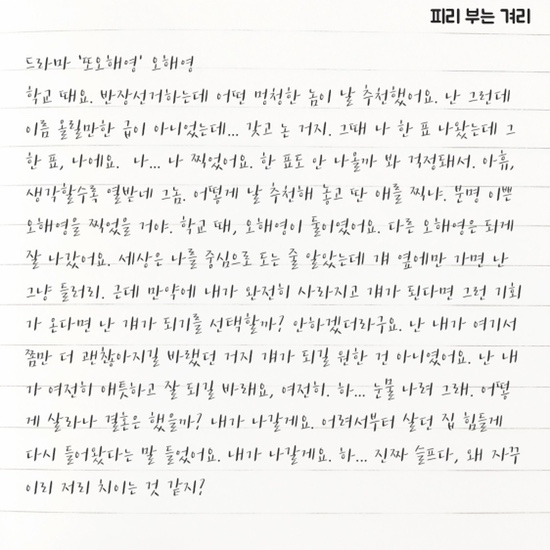 피리 부는 겨리
드라마 '또오해영' 오해영
학교 때요. 반장선거하는데 어떤 멍청한 놈이 날 추천했어요. 난 그런데
이름 올릴만한 급이 아니었는데... 갖고 논 거지. 그때 나 한 표 나왔는데 그
한 표, 나에요. 나... 나 찍었어요. 한 표도 안 나올까 봐 걱정돼서. 아휴,
생각할수록 열받네 그놈. 어떻게 날 추천해 놓고 딴 애를 찍냐. 분명 이쁜
오해영을 찍었을 거야. 학교 때, 오해영이 둘이였어요. 다른 오해영은 되게
잘 나갔어요. 세상은 나를 중심으로 도는 줄 알았는데 걔 옆에만 가면 난
그냥 들러리. 근데 만약에 내가 완전히 사라지고 걔가 된다면 그런 기회
가 온다면 난 걔가 되기를 선택할까? 안하겠더라구요. 난 내가 여기서
쫌만 더 괜찮아지길 바랬던 거지 걔가 되길 원한 건 아니였어요. 난 내
가 여전히 애틋하고 잘 되길 바래요, 여전히. 하... 눈물 나려 그래. 어떻
게 살라나 결혼은 했을까? 내가 나갈게요. 어려서부터 살던 집 힘들게
다시 들어왔다는 말 들었어요. 내가 나갈게요. 하... 진짜 슬프다, 왜 자꾸
이리 저리 치이는 것 같지?